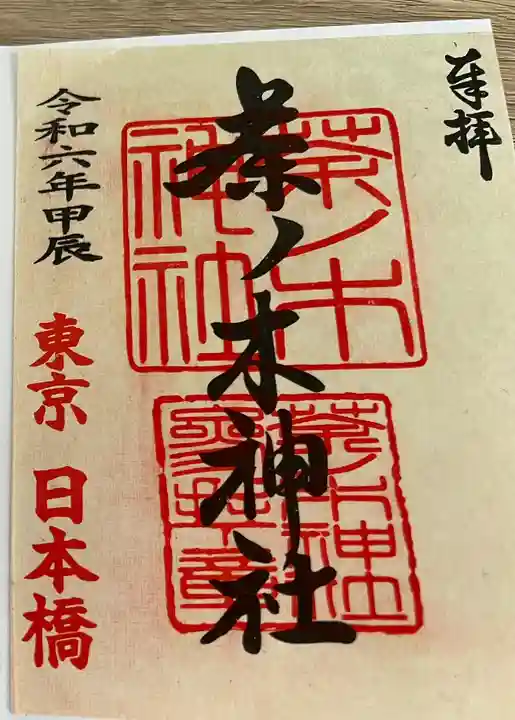 奉拝
茶ノ木神社
茶ノ木
神社
茶ノ木神社
参拝之章
令和六年甲辰
東京 日本橋